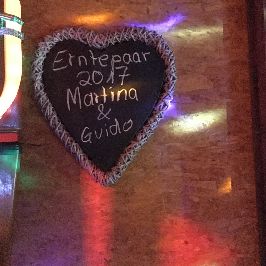 Erntepaar
2017
Martina
&
Guido